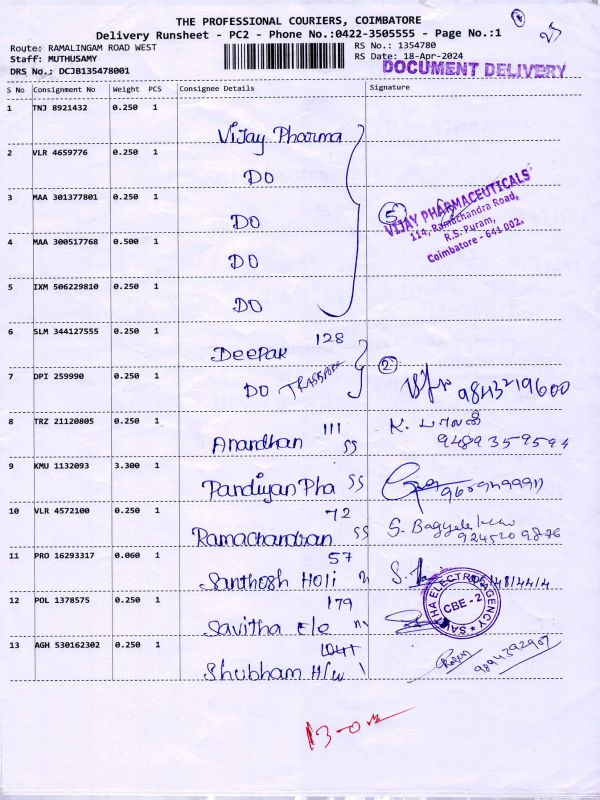 THE PROFESSIONAL COURIERS, COIMBATORE
Delivery Runsheet - PC2 - Phone No.:0422-3505555 - Page No.:1
Route: RAMALINGAM ROAD WEST
Staff: MUTHUSAMY
DRS No.; DCJB135478001
RS No.: 1354780
RS Date: 18-Apr-2024
DOCUMENT DELIVERY
S No Consignment No Weight PCS Consignee Details Signature
1 TNJ 8921432 0.250 1 Vijay Pharma
2 VLR 4659776 0.250 1 DO
3 MAA 301377801 0.250 1 DO
5
VIJAY PHARMACEUTICALS
114, Ramachandra Road,
R.S. Puram,
Coimbatore - 641 002.
4 MAA 300517768 0.500 1 DO
5 IXM 506229810 0.250 1 DO
6 SLM 344127555 0.250 1 Deepak 128
2
7 DPI 259990 0.250 1 DO TRANSPORT 9843219600
8 TRZ 21120805 0.250 1 Anandhan 111 SS K.
9489359594
9 KMU 1132093 3.300 1 Pandiyan Pha SS
10 VLR 4572100 0.250 1 Ramachandran 72 SS S.
9245209876
11 PRO 16293317 0.060 1 Santhosh Holi 57 S.
12 POL 1378575 0.250 1 Savitha Ele 179
CBE - 2
13 AGH 530162302 0.250 1 Shubham H/w
9894392907